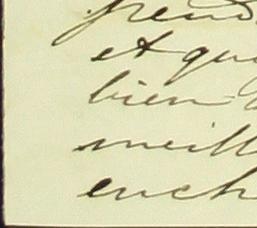 prend
et que
bien
meill
ench